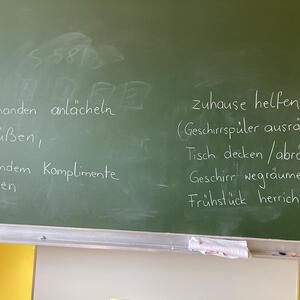 anlächeln
ndem Komplimente
zuhause helfen
(Geschirrspüler ausrä
Tisch decken / abrä
Geschirr wegräume
Frühstück herrich